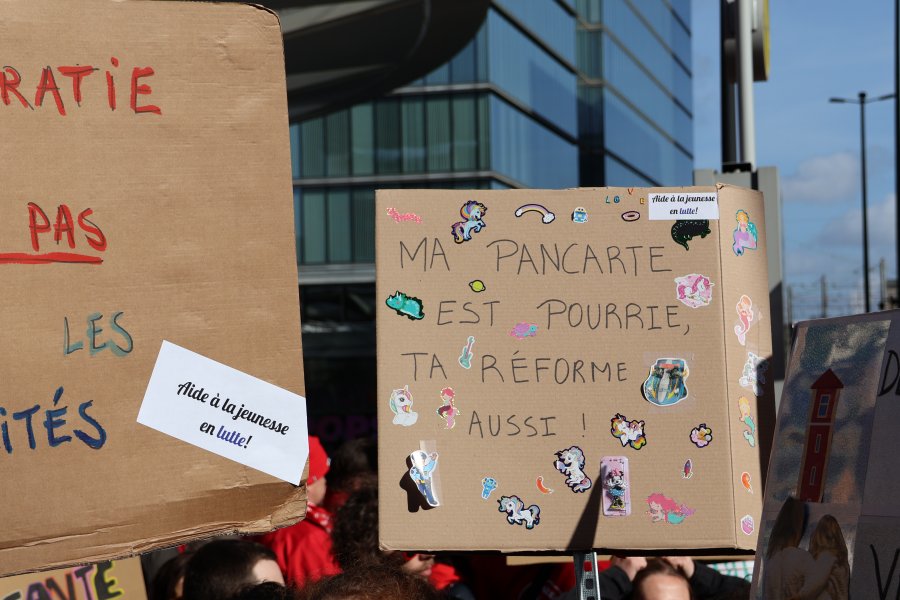 RATiE
PAS
LES
ITÉS
Aide à la jeunesse
en lutte!
LOVE
Aide à la jeunesse
en lutte!
MA PANCARTE
EST POURRIE,
TA RÉFORME
AUSSI !
ANTÉ